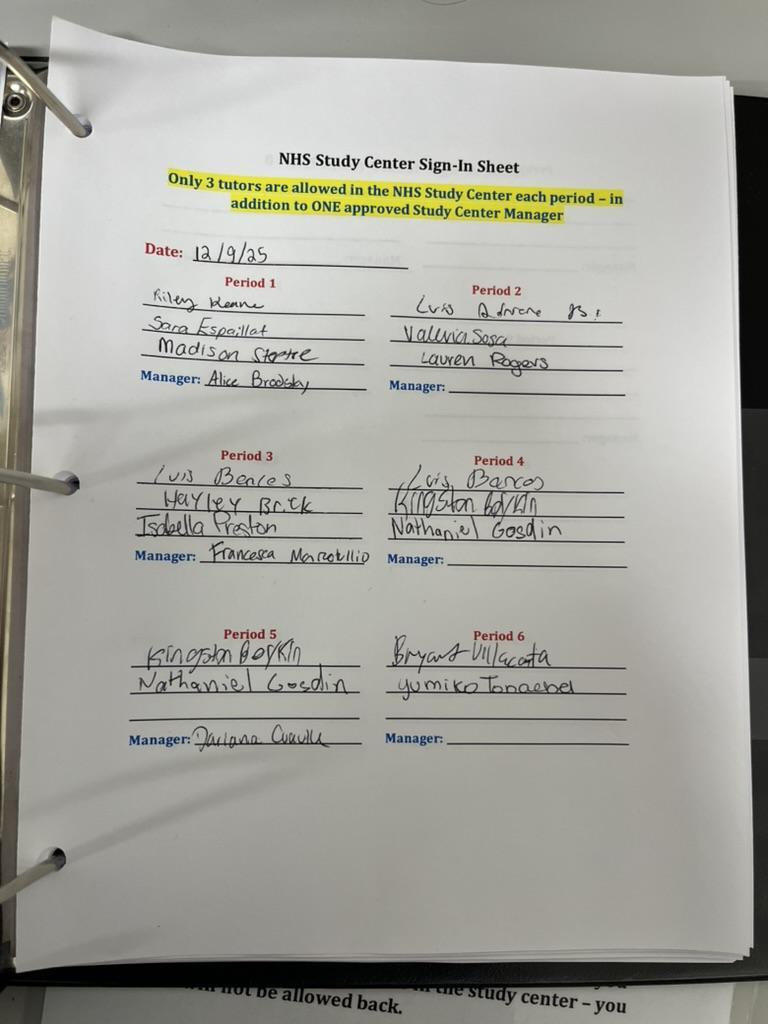 NHS Study Center Sign-In Sheet
Only 3 tutors are allowed in the NHS Study Center each period – in
addition to ONE approved Study Center Manager
Date: 12/9/25
Period 1
Riley Keane
Sara Espaillat
Madison
Manager: Alice Brodsky
Period 2
Luis
Valeria Sosa
Lauren Rogers
Manager:
Period 3
Luis
Hayley Brick
Isabella Preston
Manager: Francesca
Period 4
Luis
Kingston
Nathaniel Gosdin
Manager:
Period 5
Kingston
Nathaniel Gosdin
Manager: Dariana
Period 6
Bryant Villacorta
Yumiko
Manager:
not be allowed back.
the study center – you